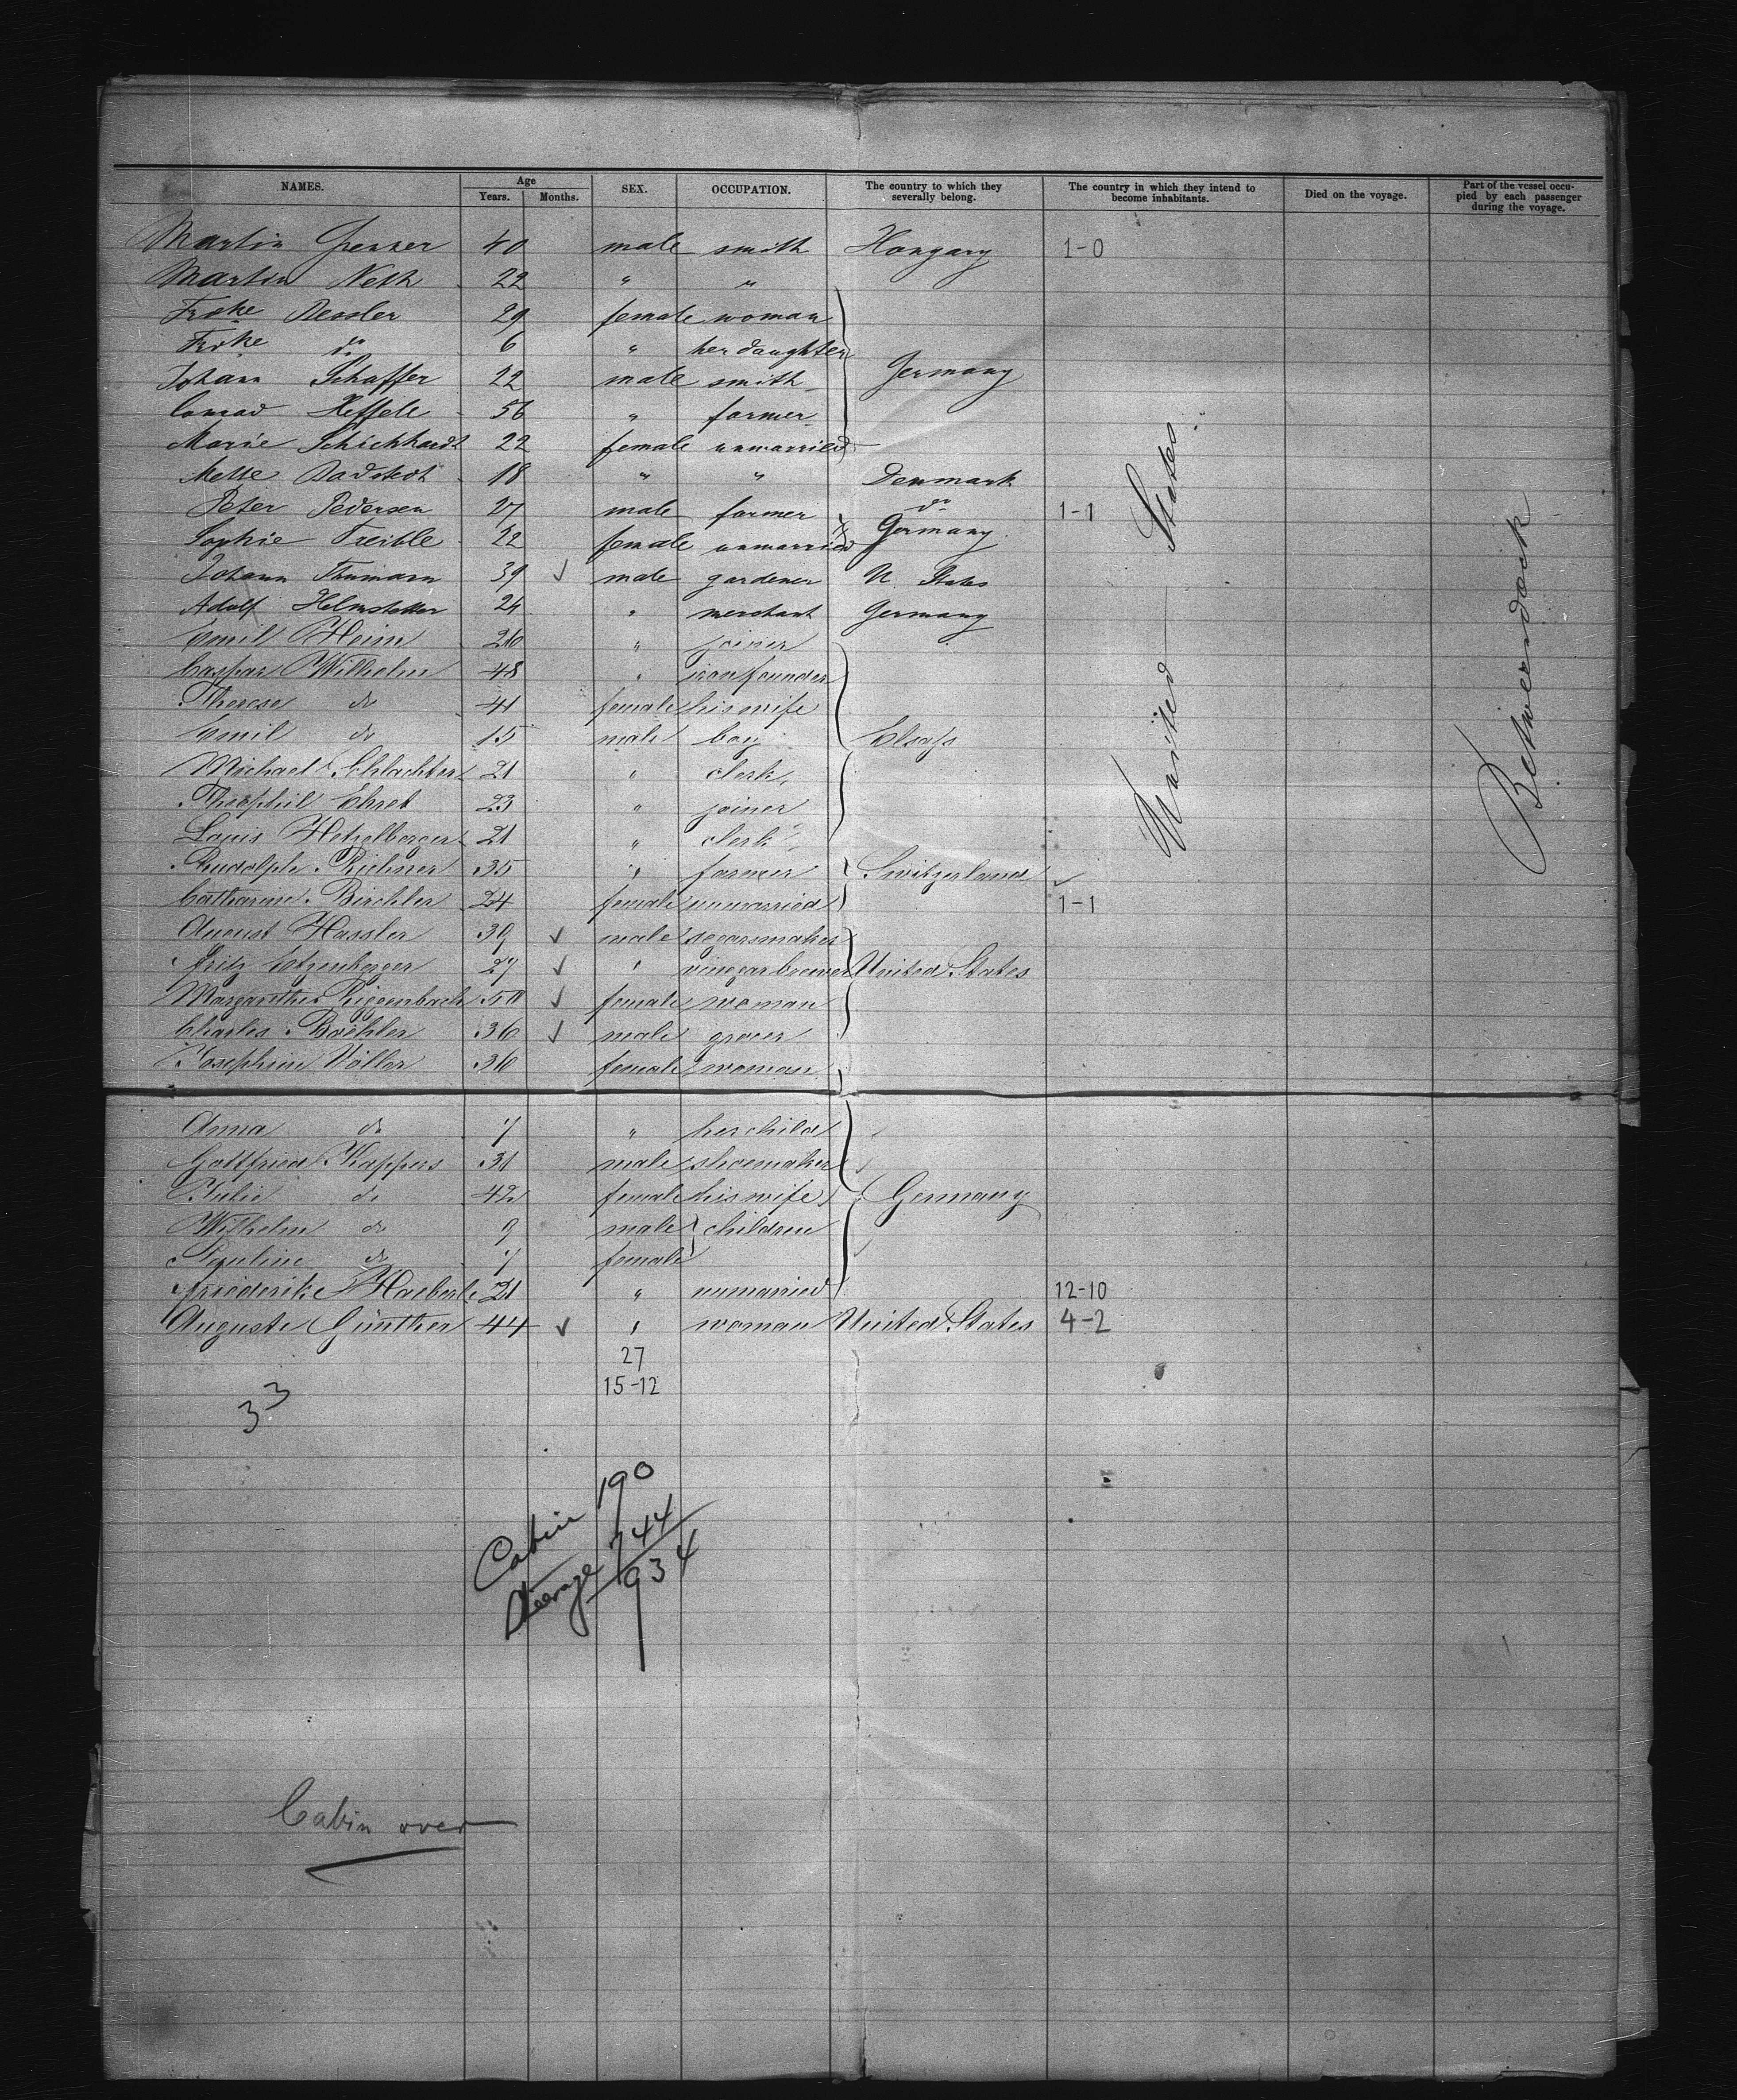 NAMES. Age Years. Months. SEX. OCCUPATION. The country to which they severally belong. The country in which they intend to become inhabitants. Died on the voyage. Part of the vessel occupied by each passenger during the voyage.
Martin 40 male smith Hongary 1-0
Martin Neth 22 " "
Froke Ressler 29 female woman
Froke do 6 " her daughter
Johann Schaffer 22 male smith Germany
Conrad Heffele 56 " farmer
Marie Schickhardt 22 female unmarried
Mette Radstedt 18 " " Denmark
Peter Pedersen 27 male farmer do 1-1
Sophie Treible 22 female unmarried Germany
Johann Thumann 39 ✓ male gardener U States
Adolf Helmstetter 24 " merchant Germany
Emil Heim 26 " joiner
Caspar Wilhelm 48 " iron founder
Therese do 41 female his wife
Emil do 15 male boy Elsass
Michael Schlachter 21 " clerk
Theophil Ehret 23 " joiner
Louis Hetzelberger 21 " clerk
Rudolph Richner 35 " farmer Switzerland
Catharine Birchler 24 female unmarried 1-1
August Hassler 39 ✓ male segarsmaker
Fritz Etzenberger 27 ✓ " vinegar brewer United States
Margaretha Riggenbach 50 ✓ female woman
Charles Boehler 36 ✓ male grocer
Josephine Völler 36 female woman
Anna do 7 " her child
Gottfried Kappers 31 male shoemaker
Julie do 42 female his wife Germany
Wilhelm do 9 male children
Pauline do 7 female
Friederike Haeberle 21 " unmarried 12-10
Auguste Günther 44 ✓ " woman United States 4-2
United States
Betweendeck
27
15-12
33
Cabin 190
Steerage 744
934
Cabin over